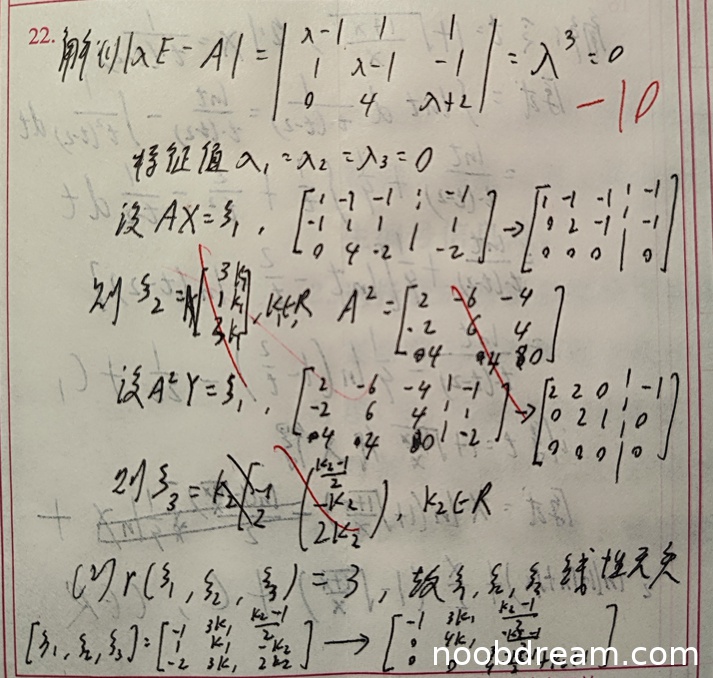 22. 解 (1) |λE-A| = | λ-1 1 1 | 1 λ-1 -1 | 0 4 λ+2 | = λ³ = 0
-10
特征值 λ₁=λ₂=λ₃=0
设 AX=ξ₁, [1 -1 -1 | -1; -1 1 1 | 1; 0 4 -2 | -2] → [1 -1 -1 | -1; 0 2 -1 | -1; 0 0 0 | 0]
则 ξ₂ = , k₁∈R A² = [2 -6 -4; -2 6 4; 4 4 80]
设 A²Y=ξ₁, [2 -6 -4 | -1; -2 6 4 | 1; 4 4 80 | -2] → [2 2 0 | -1; 0 2 1 | 0; 0 0 0 | 0]
则 ξ₃ = ((k₂-1)/2; -k₂; 2k₂), k₂∈R
(2) r(ξ₁, ξ₂, ξ₃) = 3, 故 ξ₁, ξ₂, ξ₃ 线性无关
[ξ₁, ξ₂, ξ₃] = [-1 3k₁ (k₂-1)/2; 1 k₁ -k₂; -2 3k₁ 2k₂] → [-1 3k₁ (k₂-1)/2; 0 4k₁
noobdream.com